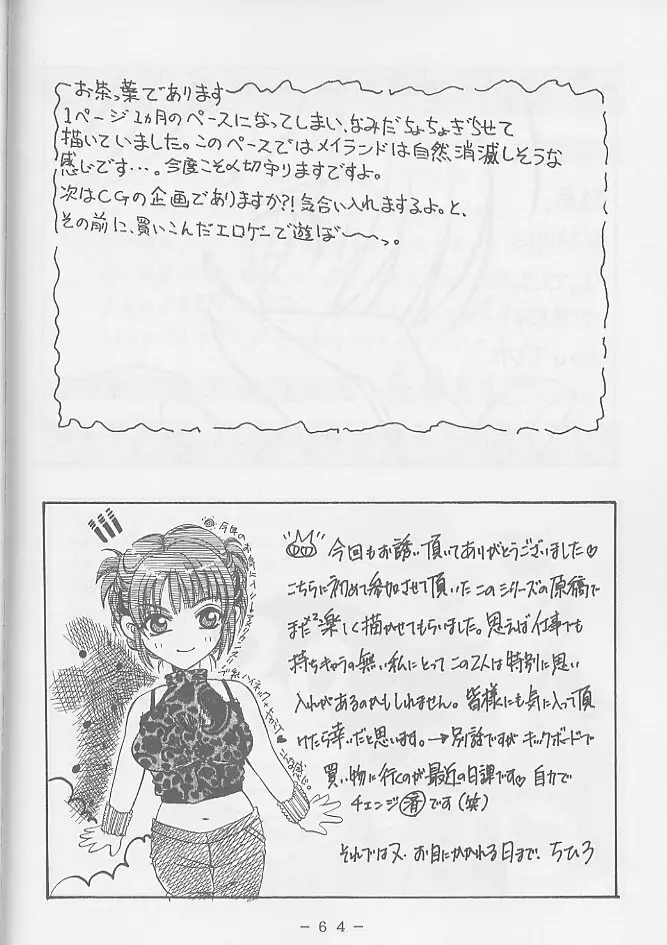 お茶っ葉であります
1ページ1ヵ月のペースになってしまい、なみだちょちょぎらせて
描いていました。このペースではメイランドは自然消滅しそうな
感じです…。今度こそ〆切守りますですよ。
次はCGの企画でありますか?!気合い入れまするよ。と、
その前に、買いこんだエロゲーで遊ぼ〜〜っ。
今回もお誘い頂いてありがとうございました♡
こちらに初めて参加させて頂いたこのシリーズの原稿で
また楽しく描かせてもらいました。思えば仕事でも
持ちキャラの無い私にとってこの2人は特別に思い
入れがあるのかもしれません。皆様にも気に入って頂
けたら幸いだと思います。→別話ですがキックボードで
買い物に行くのが最近の日課です♡ 自力で
チェンジ済です(笑)
それでは又、お目にかかれる日まで、ちひろ
こんな感じ。
－64－